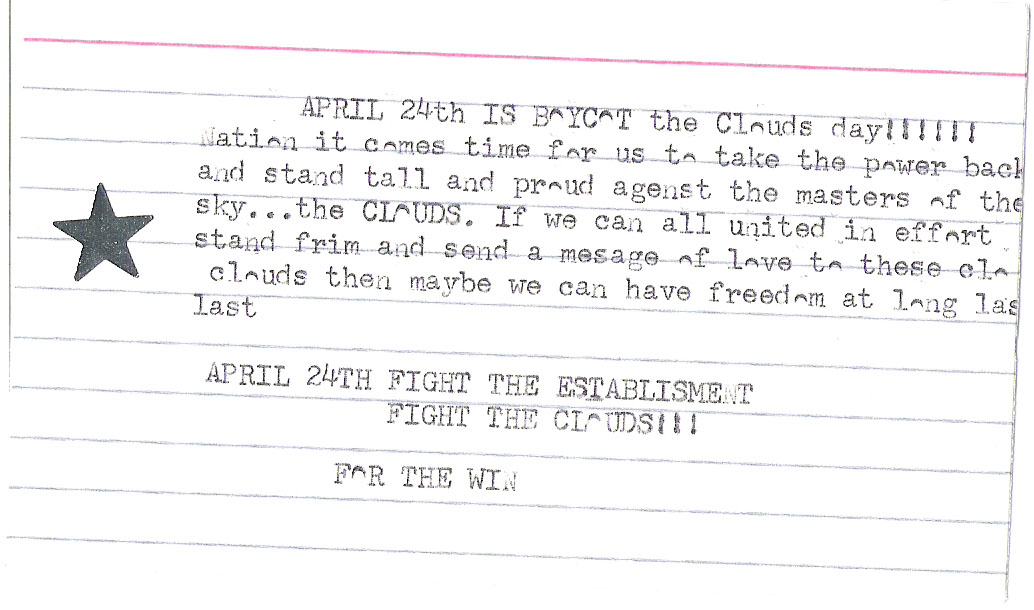 APRIL 24th IS B^YC^T the Cl^uds day!!!!!!
Nati^n it c^mes time f^r us t^ take the p^wer back
and stand tall and pr^ud agenst the masters ^f the
sky...the CL^UDS. If we can all united in eff^rt
stand frim and send a mesage ^f l^ve t^ these cl^
cl^uds then maybe we can have freed^m at l^ng las
last
APRIL 24TH FIGHT THE ESTABLISMENT
FIGHT THE CL^UDS!!!
F^R THE WIN